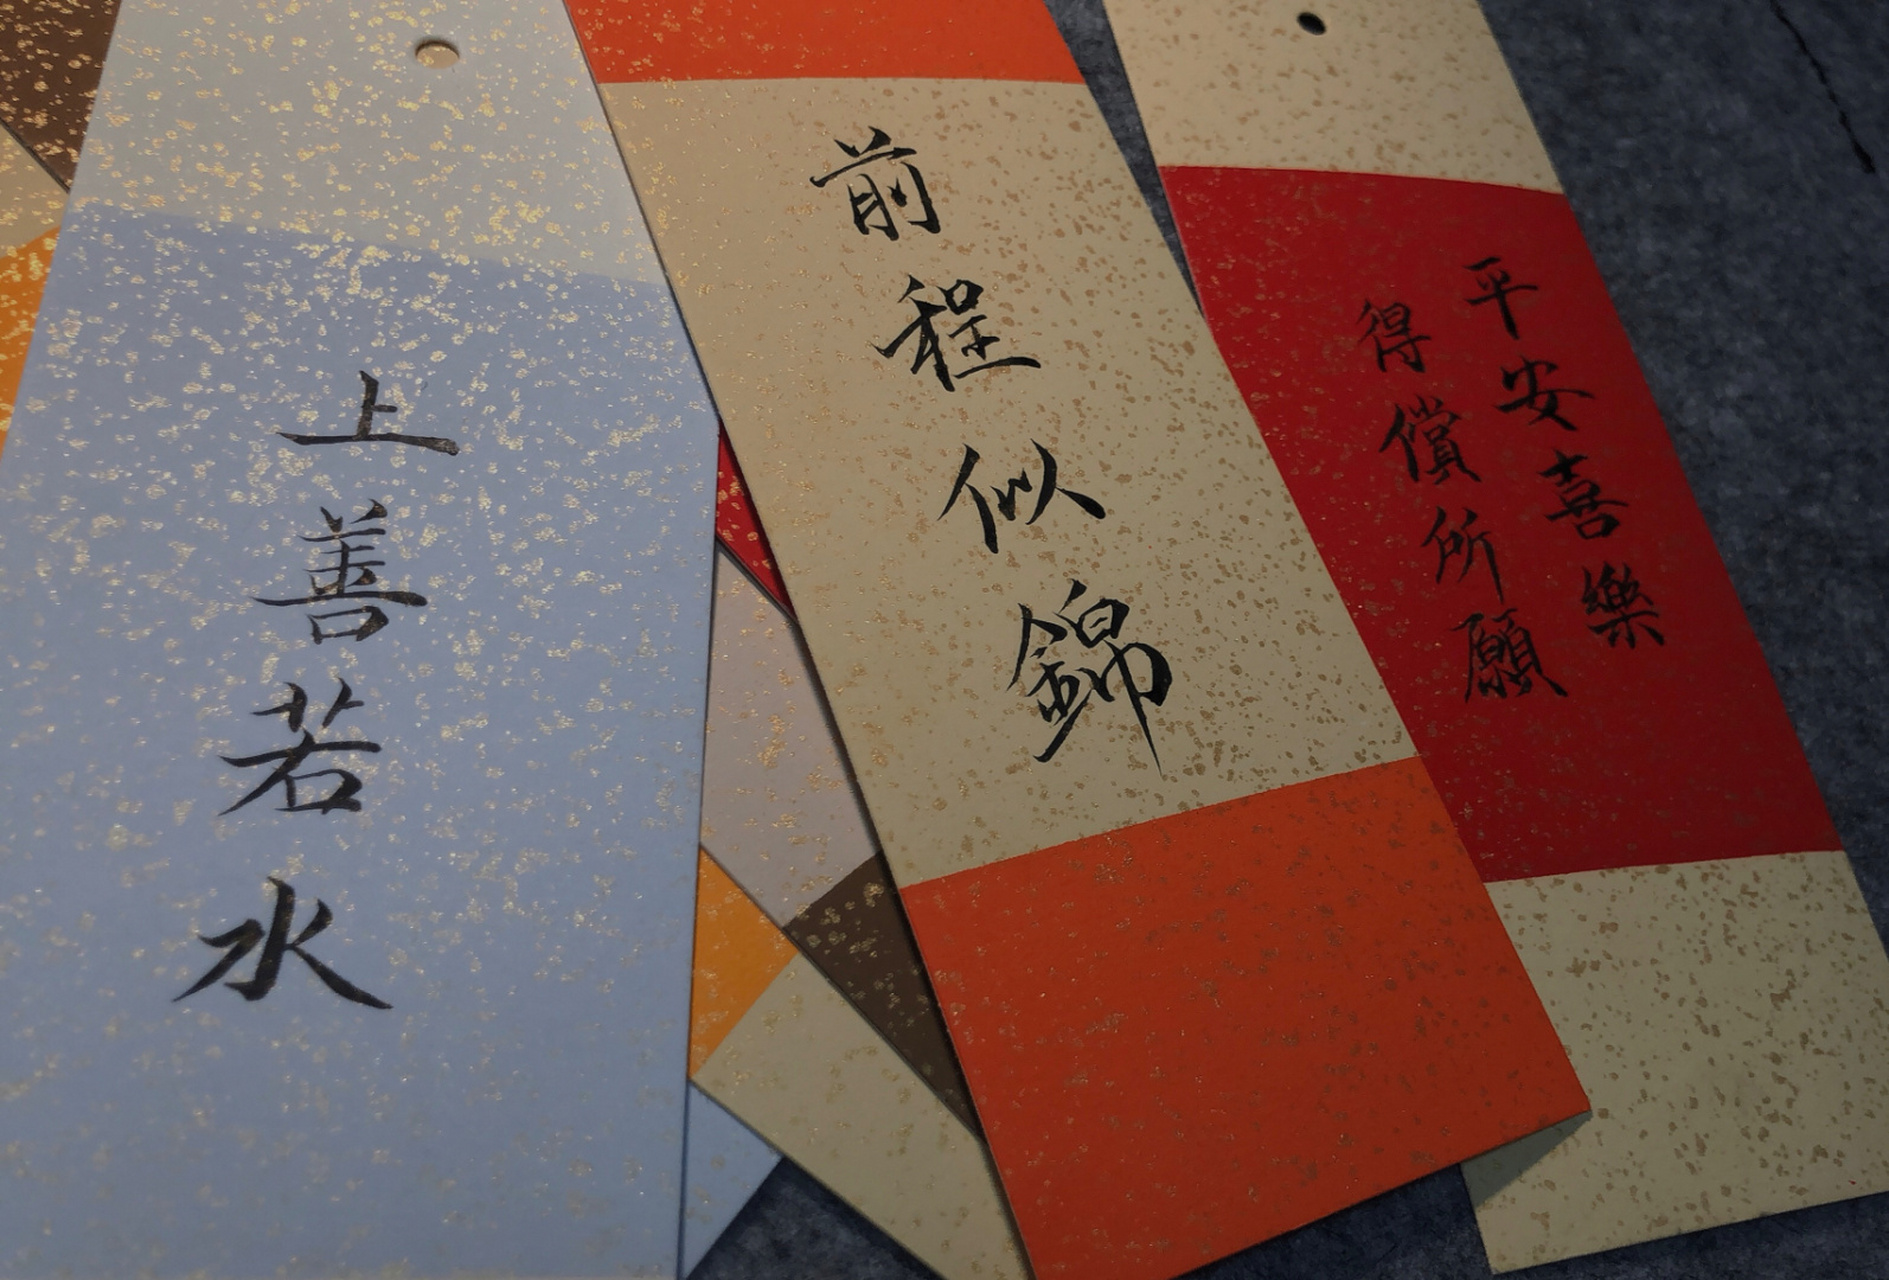 上善若水
前程似錦
平安喜樂
得償所願